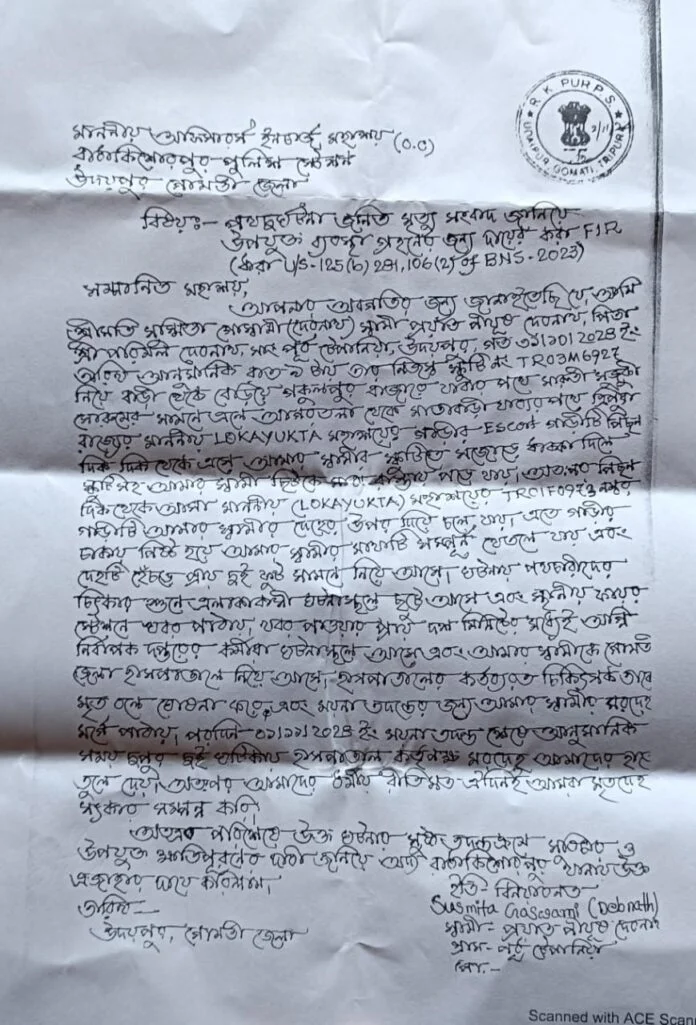 R K PUR P.S.
UDAIPUR, GOMATI, TRIPURA
মাননীয় অফিসার ইনচার্জ মহাশয় (O.C)
রাধাকিশোরপুর পুলিশ স্টেশন
উদয়পুর গোমতী জেলা
বিষয়ঃ- পথদুর্ঘটনা জনিত মৃত্যু সংবাদ জানিয়ে
উপযুক্ত ব্যবস্থা গ্রহনের জন্য দায়ের করা FIR
(ধারা U/S-125(b) 281, 106(2) of BNS-2023)
সম্মানিত মহাশয়,
আপনার অবগতির জন্য জানাইতেছি যে, আমি
শ্রীমতি সুস্মিতা গোস্বামী (দেবনাথ) স্বামী প্রয়াত পীযুষ দেবনাথ, পিতা
শ্রী পরিমল দেবনাথ, সাং পূর্ব উদয়পুর, গত ৩১/১০/ ইং
তারিখ আনুমানিক রাত ৯ টায় তার নিজস্ব স্কুটি নং TR03M6927
নিয়ে বাড়ী থেকে বেড়িয়ে বাজারে যাবার পথে মারুতী সুজুকী
শোরুমের সামনে এলে আগরতলা থেকে মাতাবাড়ী যাবার পথে ত্রিপুরা
রাজ্যের মাননীয় LOKAYUKTA মহাশয়ের গাড়ীর Escort গাড়ীটি পিছন
দিক দিক থেকে এসে আমার স্বামীর স্কুটিতে সজোড়ে ধাক্কা দিলে
স্কুটিসহ আমার স্বামী ছিটকে রাস্তায় পড়ে যায়, অতঃপর পিছন
দিক থেকে আসা মাননীয় (LOKAYUKTA) মহাশয়ের নম্বর
গাড়ীটি আমার স্বামীর দেহের উপর দিয়ে চলে যায়, এতে গাড়ীর
চাকায় পিষ্ট হয়ে আমার স্বামীর মাথাটি সম্পূর্ন থেতলে যায় এবং
দেহটি হেঁচড়ে প্রায় দুই ফুট সামনে নিয়ে আসে। ঘটনায় পথচারীদের
চিৎকার শুনে এলাকাবাসী ঘটনাস্থলে ছুটে আসে এবং স্থানীয় ফায়ার
স্টেশনে খবর পাঠায়, খবর পাওয়ার প্রায় দশ মিনিটের মধ্যেই অগ্নি
নির্বাপক দপ্তরের কর্মীরা ঘটনাস্থলে আসে এবং আমার স্বামীকে গোমতী
জেলা হাসপাতালে নিয়ে আসে, হাসপাতালের কর্তব্যরত চিকিৎসক তাকে
মৃত বলে ঘোষনা করে, এবং ময়না তদন্তের জন্য আমার স্বামীর মরদেহ
মর্গে পাঠায়, পরদিন ইং ময়না তদন্ত শেষে আনুমানিক
সময় দুপুর দুই ঘটিকায় হাসপাতাল কর্তৃপক্ষ মরদেহ আমাদের হাতে
তুলে দেয়। অতঃপর আমাদের ধর্মীয় রীতিমত ঐদিনই আমরা মৃতদেহ
সৎকার সম্পন্ন করি।
অতএব পরিশেষে উক্ত ঘটনার সুষ্ঠ তদন্তক্রমে সুবিচার ও
উপযুক্ত ক্ষতিপূরণের দাবী জানিয়ে অদ্য রাধাকিশোরপুর থানায় উক্ত
এজাহার দায়ে করিলাম।
ইতি- বিনয়াবনত
তারিখ-
Susmita Gaswami (Debnath)
উদয়পুর, গোমতী জেলা
স্বামী- প্রয়াত পীযুষ দেবনাথ
গ্রাম- পূর্ব
পো.-
Scanned with ACE Scan